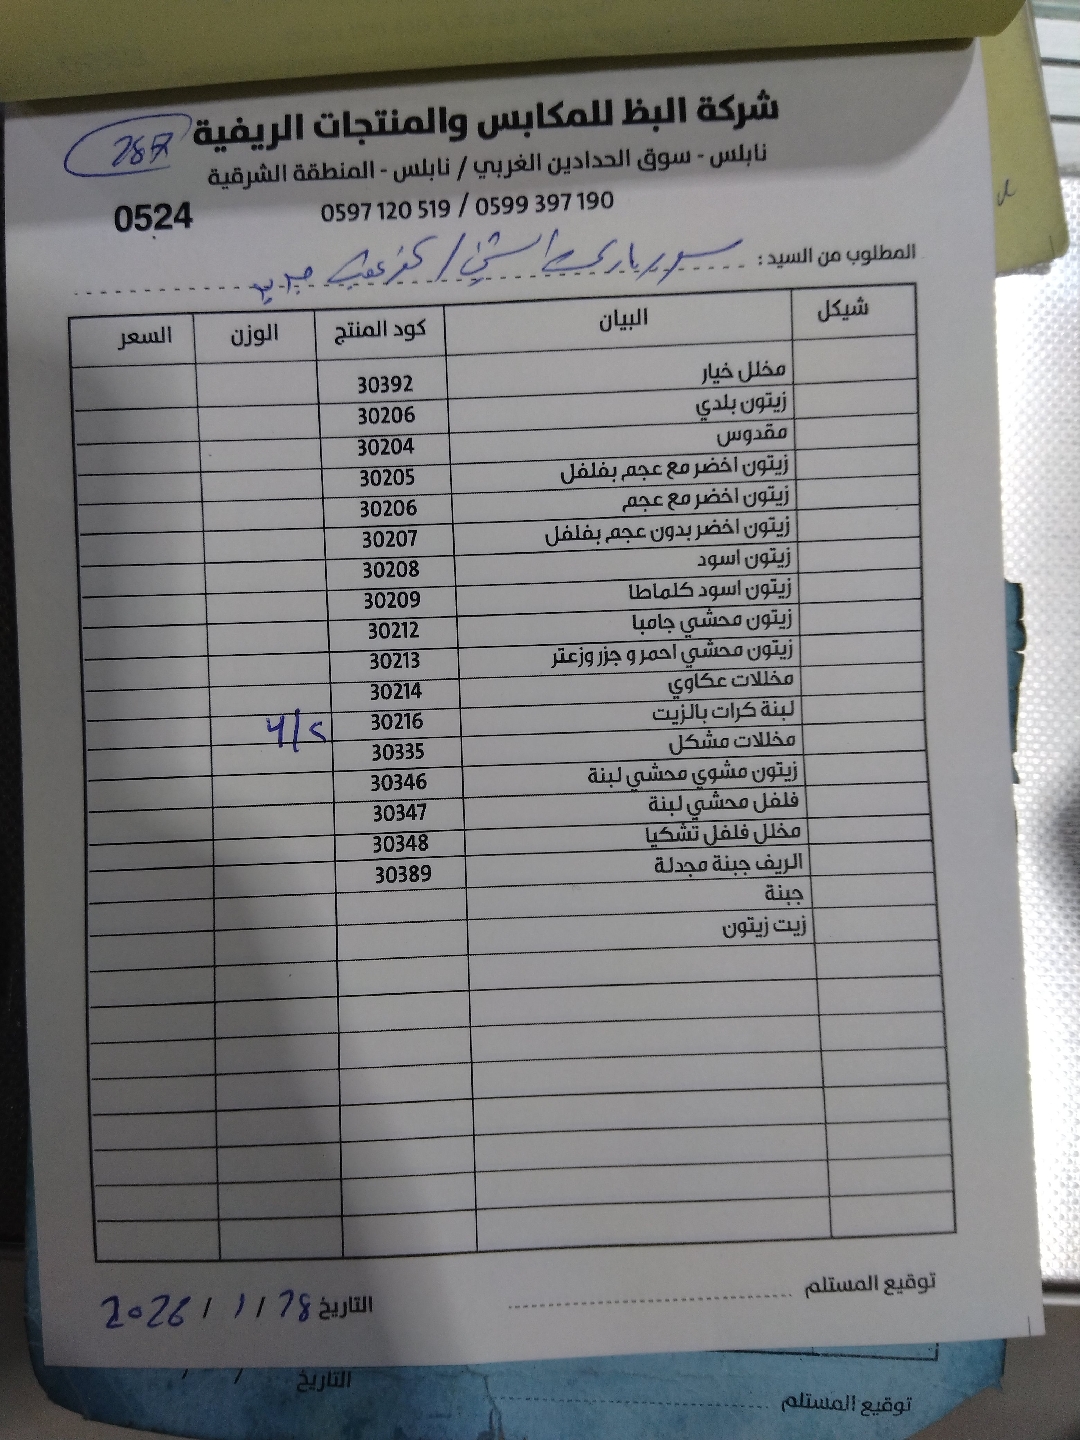 شركة البظ للمكابس والمنتجات الريفية
287
نابلس - سوق الحدادين الغربي / نابلس - المنطقة الشرقية
0597 120 519 / 0599 397 190
0524
المطلوب من السيد :
شيكل البيان كود المنتج الوزن السعر
مخلل خيار 30392
زيتون بلدي 30206
مقدوس 30204
زيتون اخضر مع عجم بفلفل 30205
زيتون اخضر مع عجم 30206
زيتون اخضر بدون عجم بفلفل 30207
زيتون اسود 30208
زيتون اسود كلماطا 30209
زيتون محشي جامبا 30212
زيتون محشي احمر و جزر وزعتر 30213
مخللات عكاوي 30214
لبنة كرات بالزيت 30216
مخللات مشكل 30335
زيتون مشوي محشي لبنة 30346
فلفل محشي لبنة 30347
مخلل فلفل تشكيا 30348
الريف جبنة مجدلة 30389
جبنة
زيت زيتون
توقيع المستلم
التاريخ 28 / 1 / 2026
توقيع المستلم
التاريخ / /